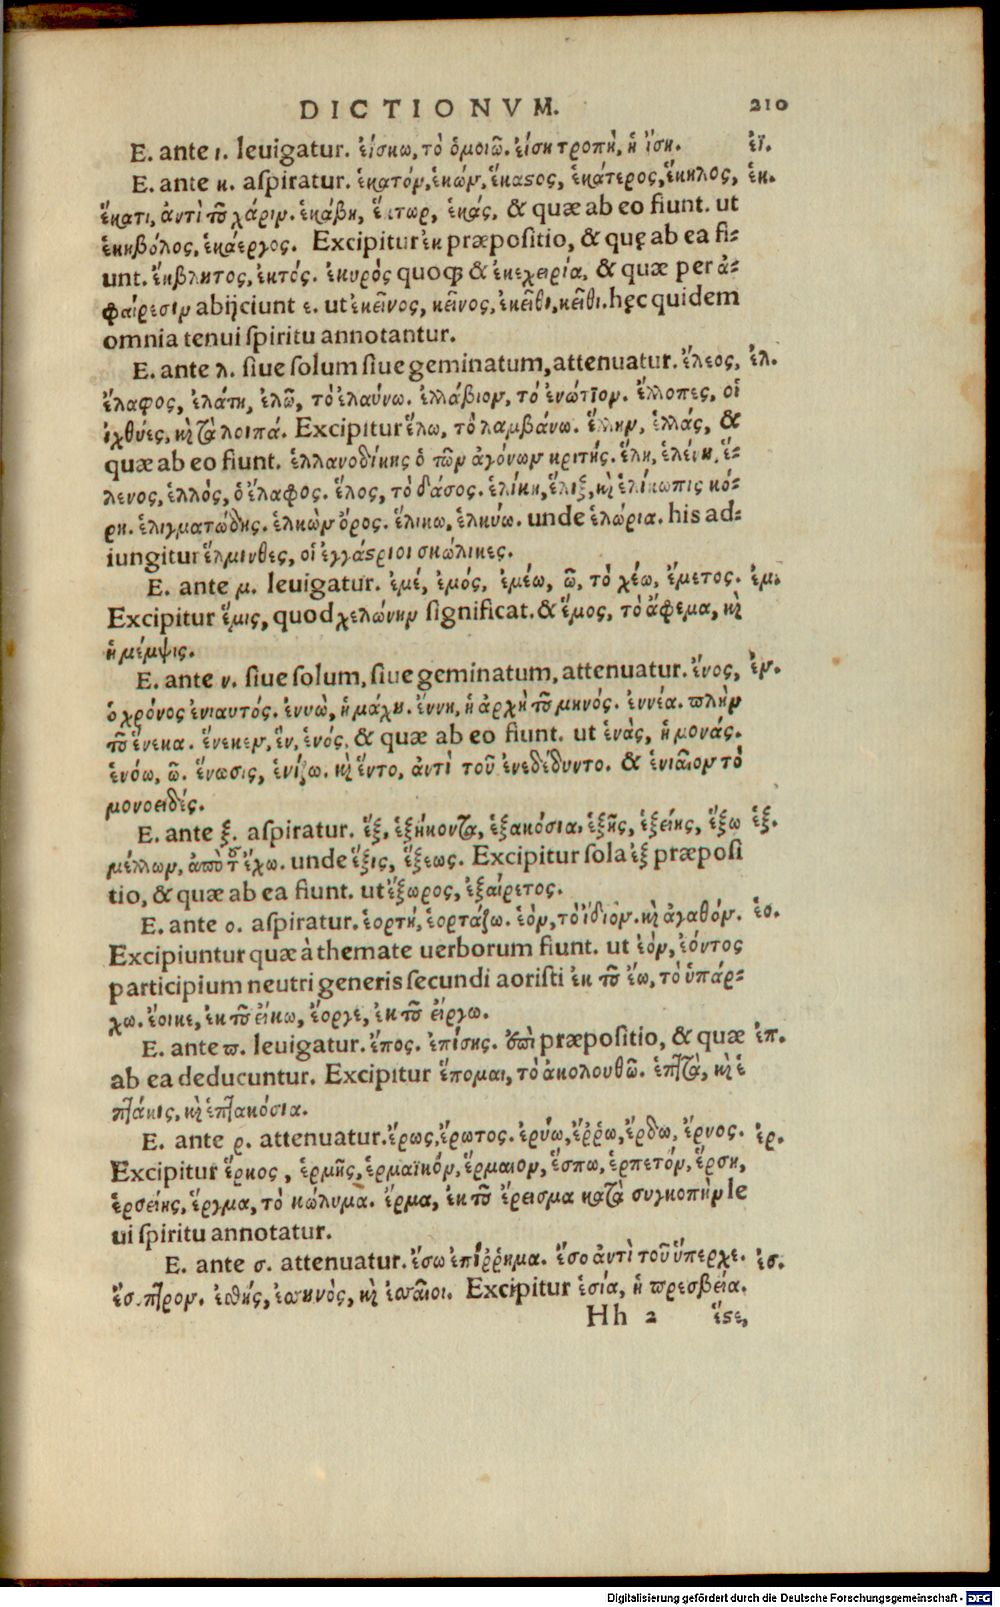 DICTIONVM. 210
E. ante ι. leuigatur. ἐίσκω, τὸ ὁμοιῶ. ἐίσκη τροπὴ, ἡ ἴση. ἐϊ.
E. ante κ. aſpiratur. ἑκατόν, ἑκών, ἕκαστος, ἑκάτερος, ἕκηλος, ἑκ.
ἕκατι, ἀντὶ τοῦ χάριν. ἑκάβη, ἕκτωρ, ἑκάς, & quæ ab eo fiunt. ut
ἑκηβόλος, ἑκάεργος. Excipitur ἐκ præpoſitio, & quę ab ea fi-
unt. ἔκβλητος, ἐκτός. ἑκυρός quoq; & ἐκεχειρία, & quæ per ἀ-
φαίρεσιν abijciunt ε. ut ἐκεῖνος, κεῖνος, ἐκεῖθι, κεῖθι. hęc quidem
omnia tenui ſpiritu annotantur.
E. ante λ. ſiue ſolum ſiue geminatum, attenuatur. ἔλεος, ἐλ.
ἔλαφος, ἐλάτη, ἐλῶ, τὸ ἐλαύνω. ἐλλάβιον, τὸ ἐνώτιον. ἔλλοπες, οἱ
ἰχθύες, καὶ τὰ λοιπά. Excipitur ἕλω, τὸ λαμβάνω. ἕλλην, ἑλλάς, &
quæ ab eo fiunt. ἑλλανοδίκης ὁ τῶν ἀγόνων κριτής. ἕλη, ἑλένη, ἕ-
λενος, ἑλλός, ὁ ἔλαφος. ἕλος, τὸ δάσος. ἑλίκη, ἕλιξ, καὶ ἑλίκωπις κό-
ρη. ἑλιγματώδης. ἑλκὼν ὄρος. ἕλικω, ἑλκύω. unde ἑλώρια. his ad-
iungitur ἕλμινθες, οἱ ἐγγάστριοι σκώλικες.
E. ante μ. leuigatur. ἐμέ, ἐμός, ἐμέω, ῶ, τὸ χέω, ἔμετος. ἐμ.
Excipitur ἕμις, quod χελώνην ſignificat. & ἕμος, τὸ ἄφεμα, καὶ
ἡ μέμψις.
E. ante ν. ſiue ſolum, ſiue geminatum, attenuatur. ἔνος, ἐν.
ὁ χρόνος ἐνιαυτός. ἐνυὼ, ἡ μάχη. ἔννη, ἡ ἀρχὴ τοῦ μηνός. ἐννέα. πλὴν
τοῦ ἕνεκα. ἕνεκεν, ἓν, ἑνός, & quæ ab eo fiunt. ut ἑνὰς, ἡ μονάς.
ἑνόω, ῶ. ἕνωσις, ἑνίζω. καὶ ἕντο, ἀντὶ τοῦ ἐνεδέδυντο. & ἑνιαῖον τὸ
μονοειδές.
E. ante ξ. aſpiratur. ἕξ, ἑξήκοντα, ἑξακόσια, ἑξῆς, ἑξείης, ἕξω ἑξ.
μέλλων, ἀπὸ τοῦ ἔχω. unde ἕξις, ἕξεως. Excipitur ſola ἐξ præpoſi
tio, & quæ ab ea fiunt. ut ἔξωρος, ἐξαίρετος.
E. ante ο. aſpiratur. ἑορτή, ἑορτάζω. ἑόν, τὸ ἴδιον. καὶ ἀγαθόν. ἑο.
Excipiuntur quæ à themate uerborum fiunt. ut ἐὸν, ἐόντος
participium neutri generis ſecundi aoriſti ἐκ τοῦ ἔω, τὸ ὑπάρ-
χω. ἔοικε, ἐκ τοῦ εἴκω, ἔοργε, ἐκ τοῦ εἴργω.
E. ante π. leuigatur. ἔπος. ἐπίσης. ἐπὶ præpoſitio, & quæ ἐπ.
ab ea deducuntur. Excipitur ἕπομαι, τὸ ἀκολουθῶ. ἑπτὰ, καὶ ἑ
πτάκις, καὶ ἑπτακόσια.
E. ante ρ. attenuatur. ἔρως, ἔρωτος. ἐρύω, ἔῤῥω, ἔρδω, ἔρνος. ἐρ.
Excipitur ἕρκος, ἑρμῆς, ἑρμαϊκόν, ἕρμαιον, ἕσπω, ἑρπετόν, ἕρση,
ἑρσείης, ἕργμα, τὸ κώλυμα. ἕρμα, ἐκ τοῦ ἔρεισμα κατὰ συγκοπὴν le
ui ſpiritu annotatur.
E. ante σ. attenuatur. ἔσω ἐπίῤῥημα. ἔσο ἀντὶ τοῦ ὕπερχε. ἐσ.
ἔσοπτρον. ἐσθής, ἐσσηνὸς, καὶ ἐσσαῖοι. Excipitur ἑσία, ἡ πρεσβεία.
Hh 2 ἕστε,
Digitalisierung gefördert durch die Deutsche Forschungsgemeinschaft - DFG